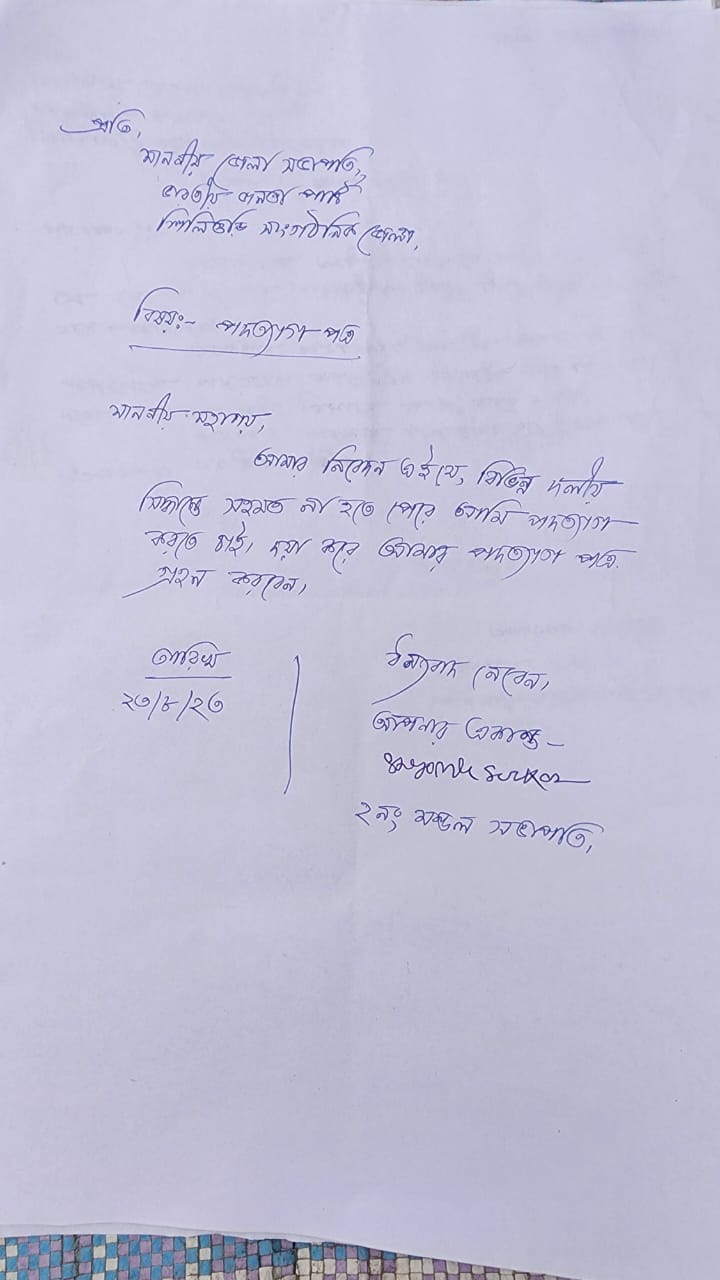 প্রতি,
মাননীয় জেলা সভাপতি,
ভারতীয় জনতা পার্টি
শিলিগুড়ি সাংগঠনিক জেলা,
বিষয়ঃ- পদত্যাগ পত্র
মাননীয় মহাশয়,
আমার নিবেদন এইযে, বিভিন্ন দলীয়
সিদ্ধান্তে সহমত না হতে পেরে আমি পদত্যাগ
করতে চাই, দয়া করে আমার পদত্যাগ পত্র
গ্রহন করবেন,
তারিখ
২৩/৮/২৩
ধন্যবাদ নেবেন,
আপনার একান্ত -
২নং মন্ডল সভাপতি,